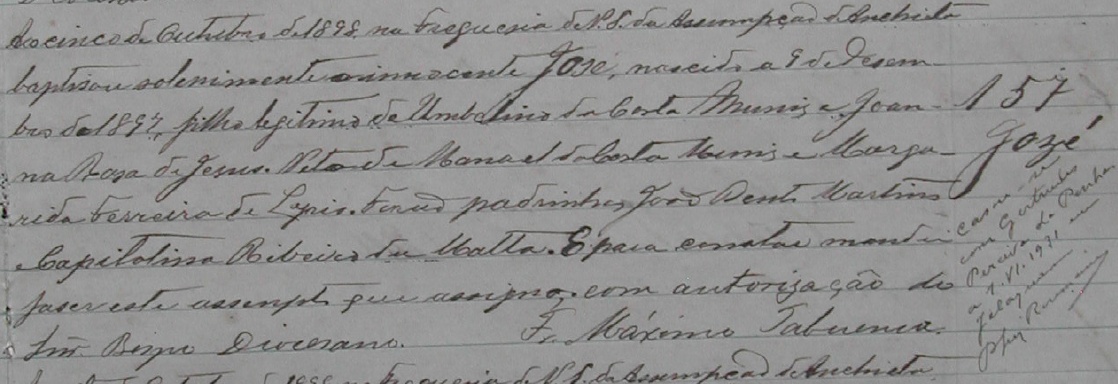 Ao cinco de Outubro de 1898 na Freguesia de N. S. da Assumpção de Anchieta
baptisou solenimente o innocente José, nascido a 9 de Desem-
bro de 1897, filho legitimo de Umbelino da Costa Munis e Joan-
na Rosa de Jesus. Neto de Manoel da Costa Munis e Marga-
rida Ferreira de . Forão padrinhos João Bento Martins
e Capitolina Ribeiro da Matta. E para constar mandei
faser este assempto que assigno, com autorização do
Snr. Bispo Diocesano.
Fr. Máximo Tabuenca.
157
José
casou-se
com Gertrudes
Pereira da Penha
a 1. VI. 1931 em
de Outubro de 1898 na Freguesia de N. S. da Assumpção de Anchieta